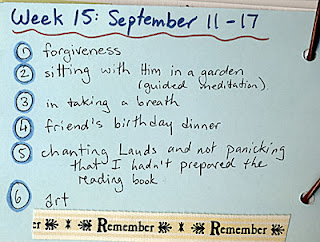 Week 15: September 11-17
1 forgiveness
2 sitting with Him in a garden
(guided meditation)
3 in taking a breath
4 friend's birthday dinner
5 chanting Lauds and not panicking
that I hadn't prepared the
reading book
6 art
er Remember Remember